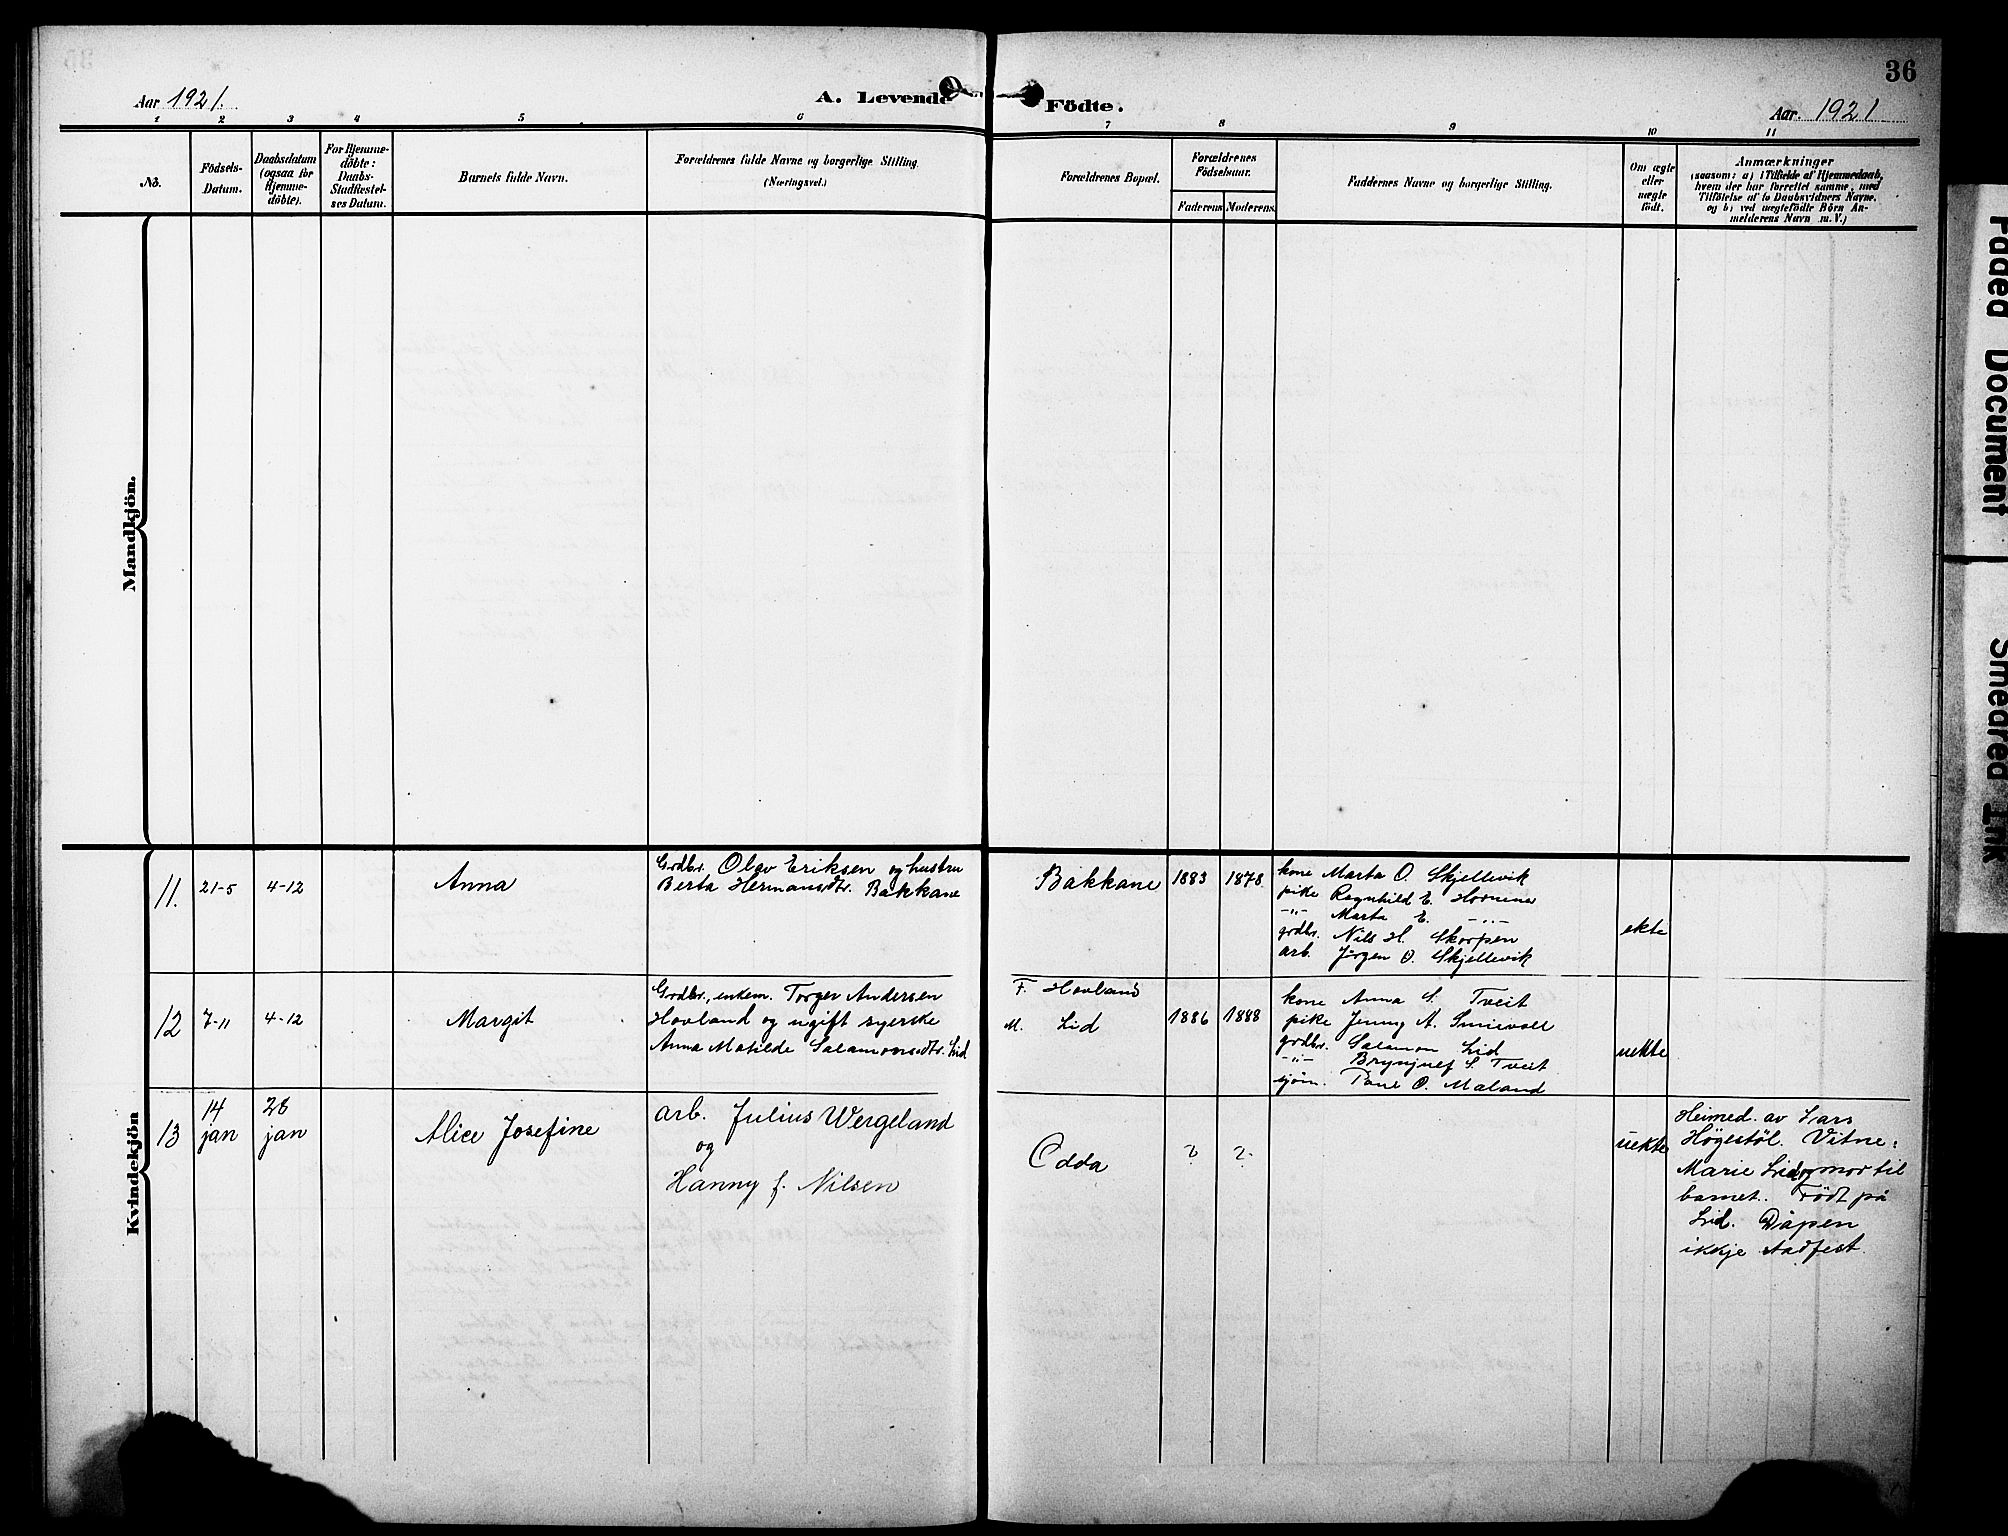 36
Aar 1921.
A. Levende Födte.
Aar. 1921
1 2 3 4 5 6 7 8 9 10 11
No.
Födsels-
Datum.
Daabsdatum
(ogsaa for
Hjemme-
döbte).
For Hjemme-
döbte:
Daabs-
Stadfæstel-
ses Datum.
Barnets fulde Navn.
Forældrenes fulde Navne og borgerlige Stilling.
(Næringsvei.)
Forældrenes Bopæl.
Forældrenes
Födselsaar.
Faderens
Moderens.
Faddernes Navne og borgerlige Stilling.
Om ægte
eller
uægte
födt.
Anmærkninger
(saasom: a) i Tilfælde af Hjemmedaab,
hvem der har forrettet samme, med
Tilföielse af to Daabsvidners Navne.
og b) ved uægtefödte Börn An-
melderens Navn m. V.)
Mandkjön.
Kvindekjön
11.
21-5
4-12
Anna
Grdbr. Olav Eriksen og hustru
Berta Hermansdtr. Bakkane
Bakkane
1883
1878
kone Marta O. Skjellevik
pike Ragnhild E.
-"- Marta E. -"-
grdbr. Nils H. Skorpen
arb. Jörgen O. Skjellevik
ekte
12
7-11
4-12
Margit
Grdbr., enkem. Torger Andersen
Hovland og ugift syerske
Anna Matilde Salamonsdtr. Lid
F. Hovland
M. Lid
1886
1888
kone Anna S. Tveit
pike Jenny A.
grdbr. Salamon Lid
-"- Brynjulf S. Tveit
sjöm. O. Mæland
uekte
13
14
jan
26
jan
Alice Josefine
arb. Julius Wergeland
og
Hanny f. Nilsen
Odda
?
?
uekte
Heimed. av Lars
Högestöl. Vitne:
Marie Lid og mor til
barnet. Födt på
Lid. Dåpen
ikkje stadfest.
Faded Document
Smeared Ink